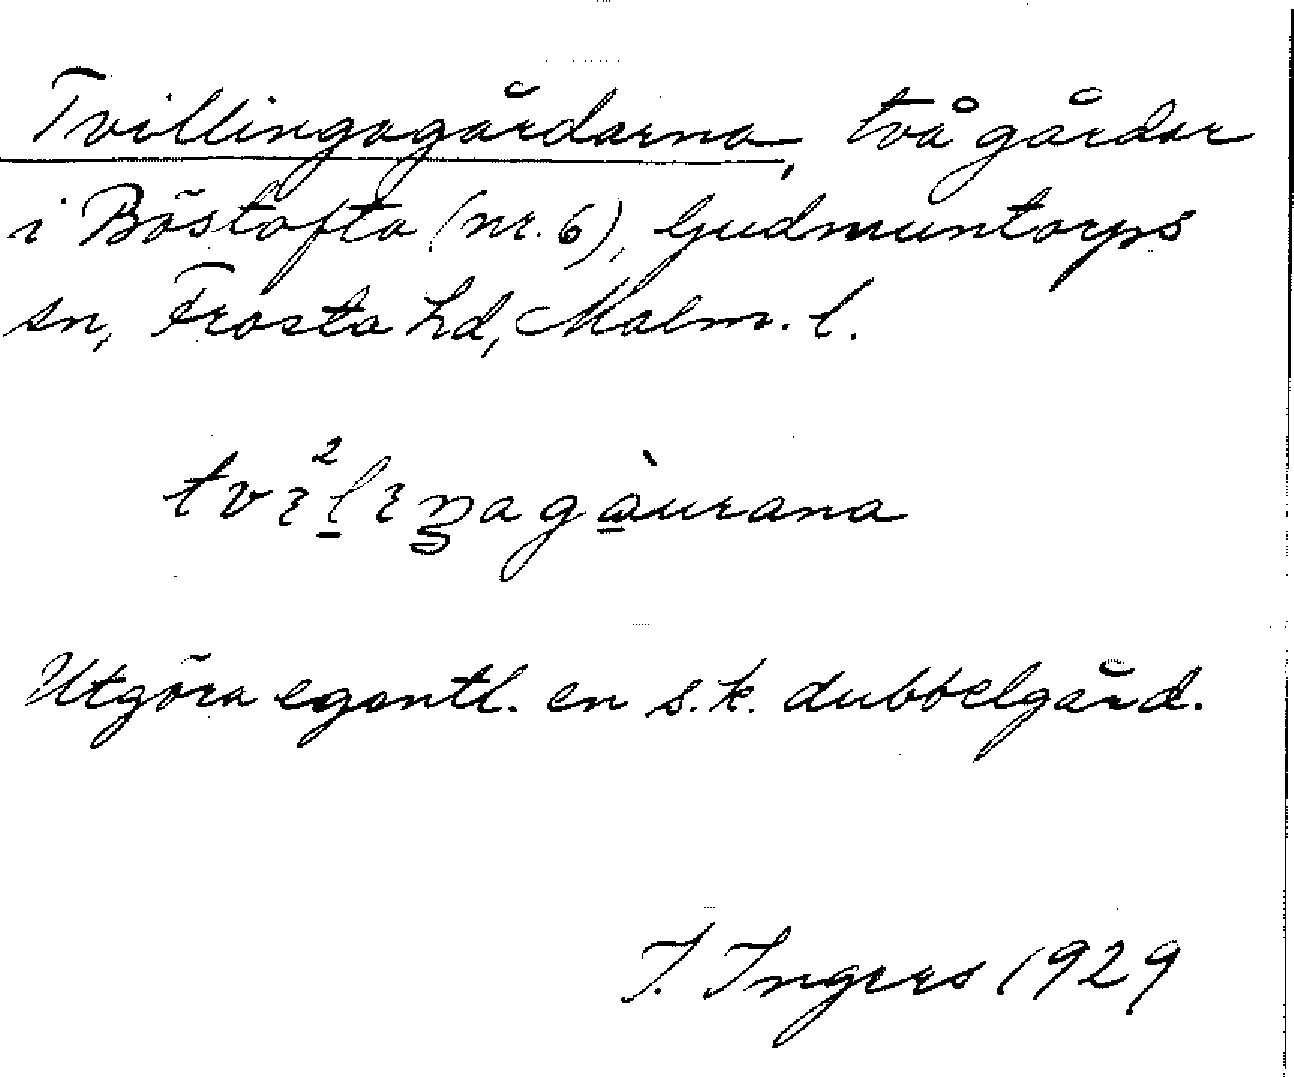 Tvillingagårdarna, två gårdar
i Böstofta (nr. 6), Gudmuntorps
sn, Frosta hd, Malm. l.
Utgöra egentl. en s.k. dubbelgård.
I. Ingers 1929